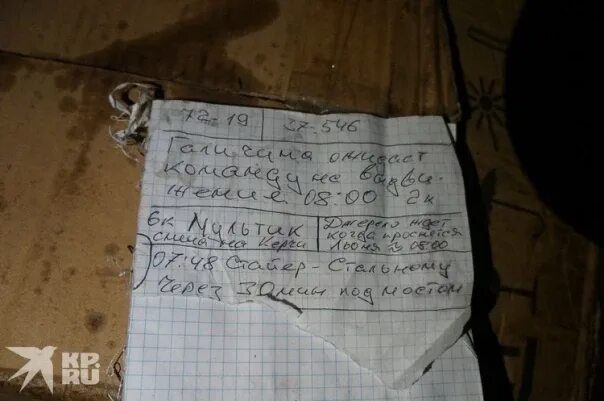 72.19 37.546
Галичина ожидает
команду на выдви-
жение 08:00 2к
6к Мультик
смена на Керчи
Джерело ждет
когда проснется
Лёня ≈ 08:00
07:48 Стайер - Стальному
Через 30 мин под мостом
KP.
RU